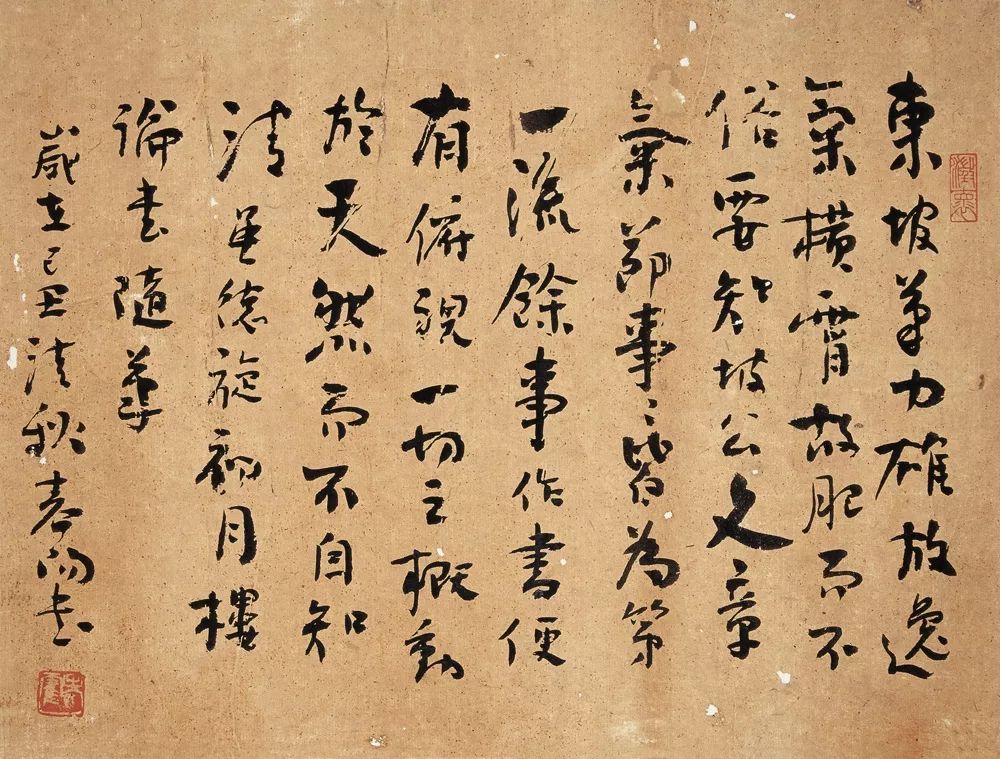 東坡筆力雄放逸
氣橫霄故肥而不
俗要知坡公文章
氣節事事皆為第
一流餘事作書便
有俯視一切之概動
於天然而不自知
清吳德旋初月樓
論書隨筆
歲在己丑清秋春雨書